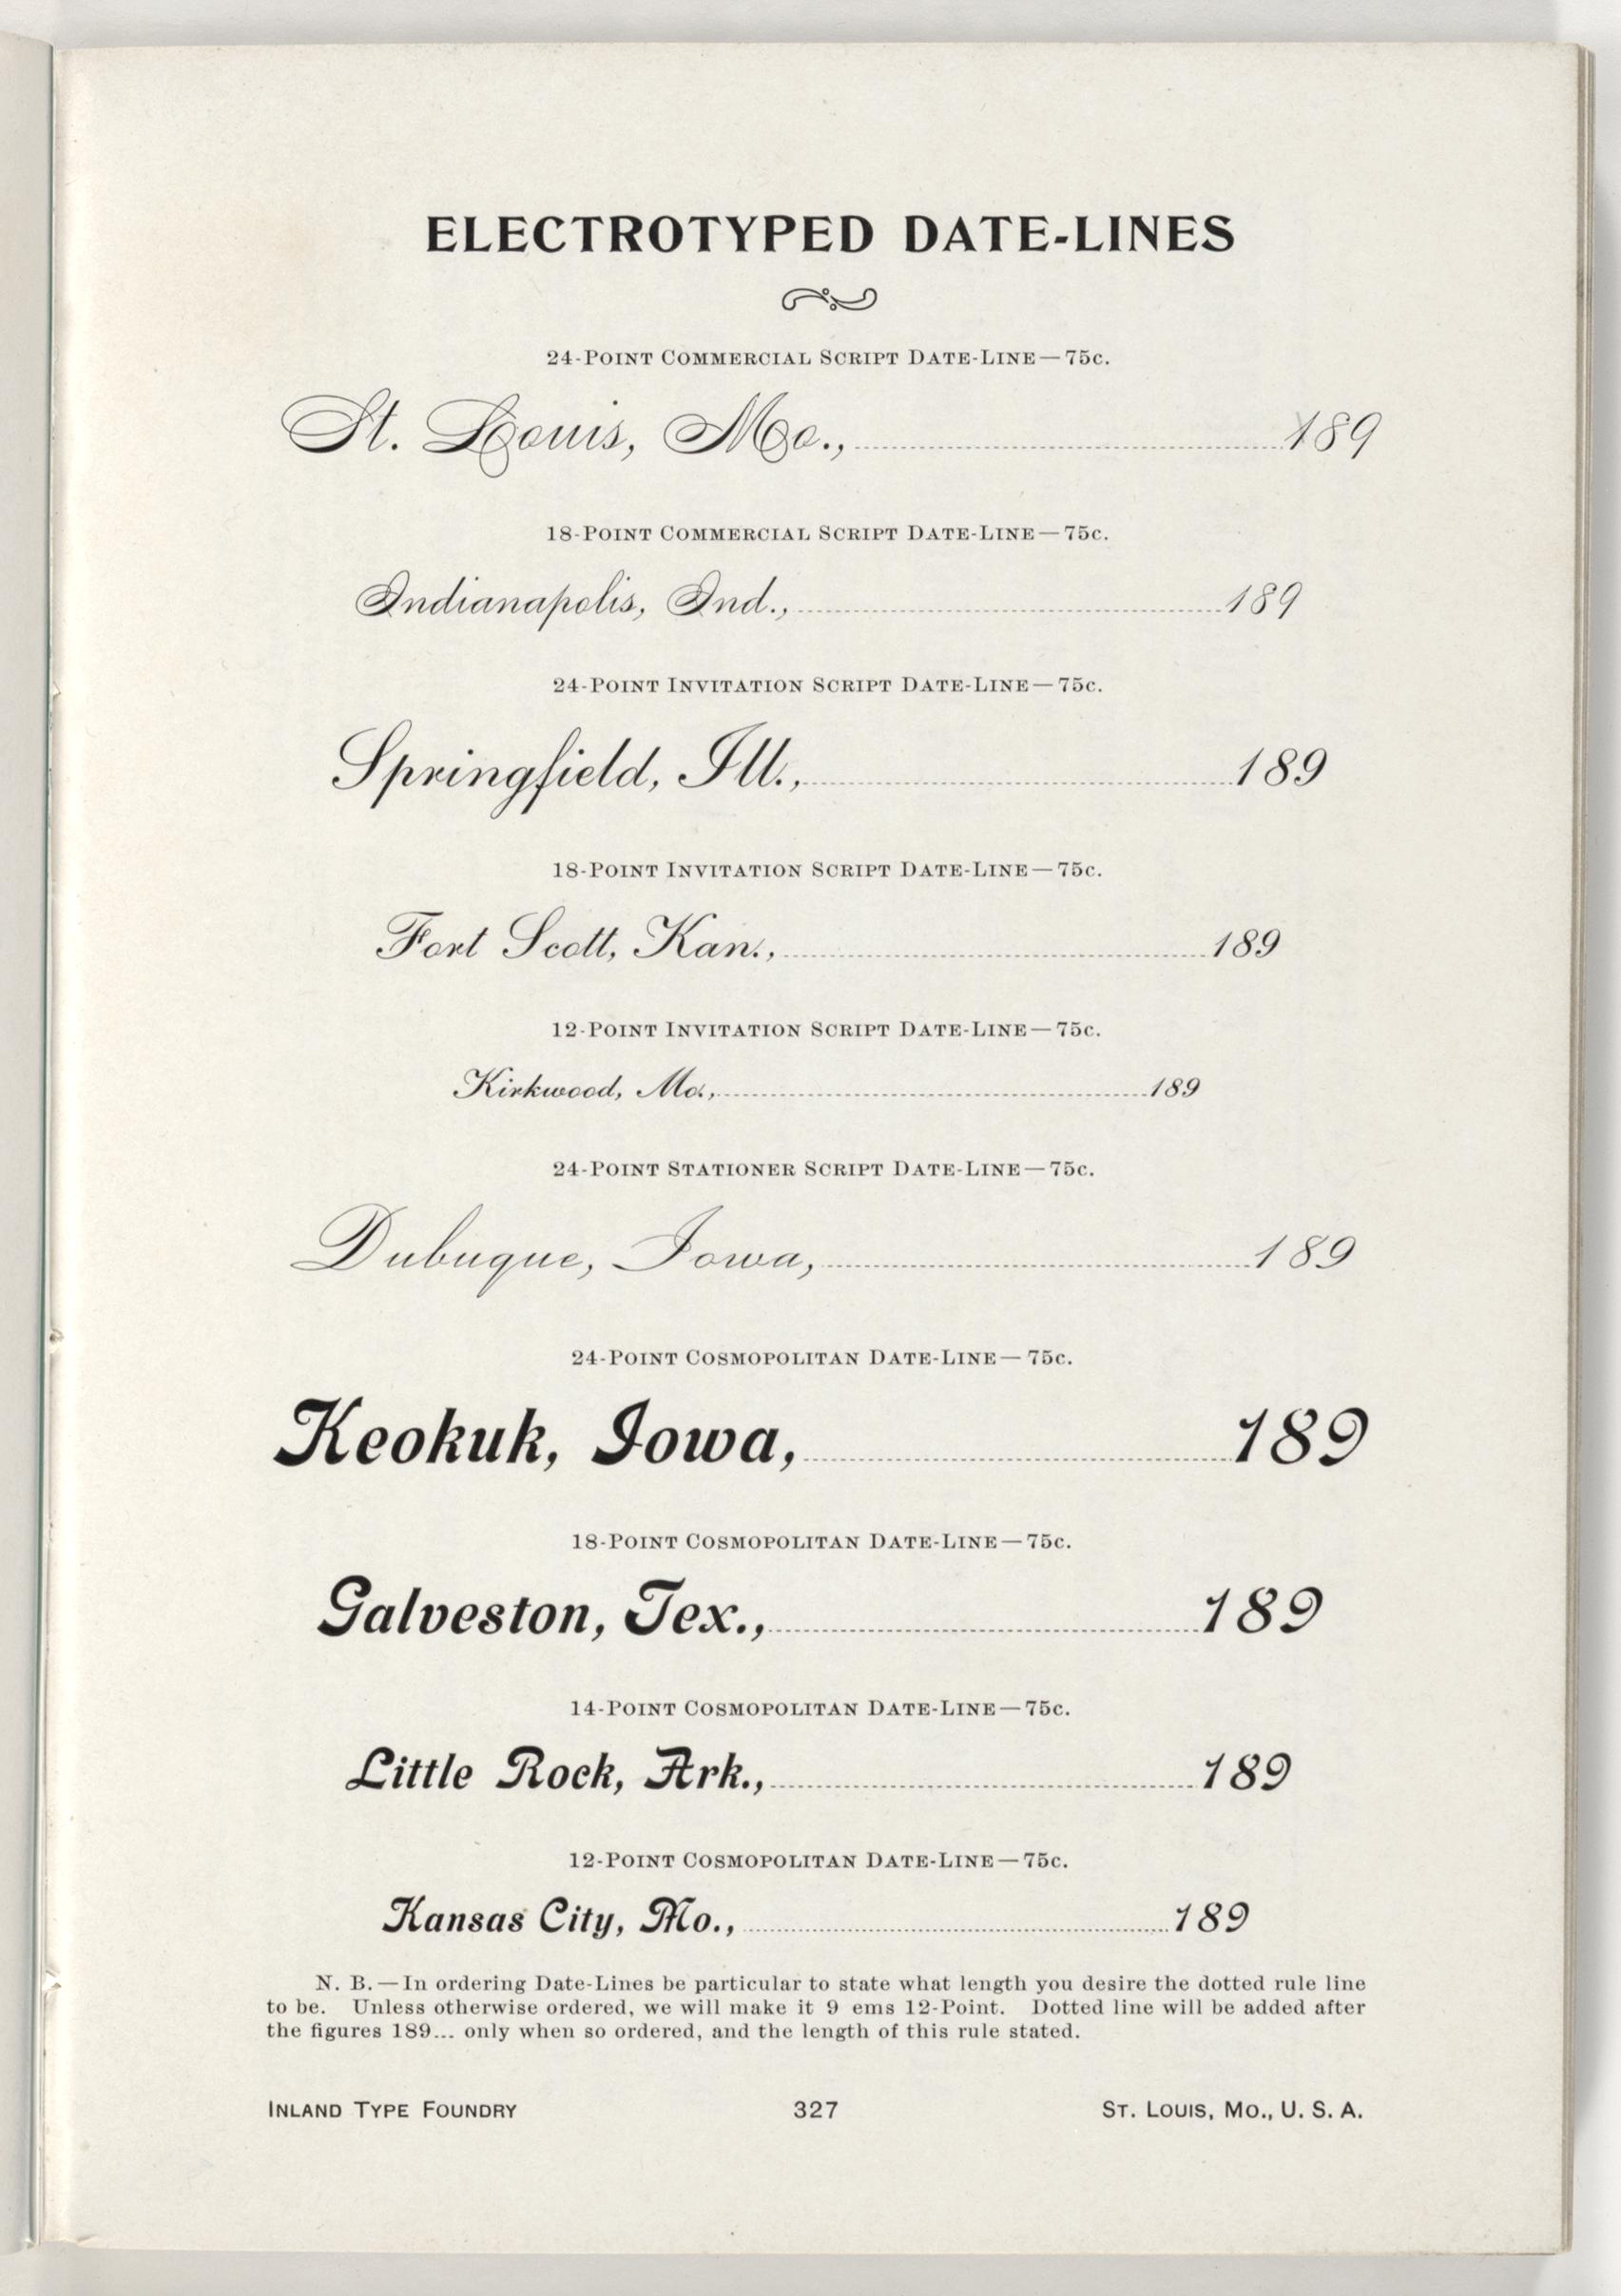 ELECTROTYPED DATE-LINES
24-POINT COMMERCIAL SCRIPT DATE-LINE—75c.
St. Louis, Mo.,........................189
18-POINT COMMERCIAL SCRIPT DATE-LINE—75c.
Indianapolis, Ind.,........................189
24-POINT INVITATION SCRIPT DATE-LINE—75c.
Springfield, Ill.,........................189
18-POINT INVITATION SCRIPT DATE-LINE—75c.
Fort Scott, Kan.,........................189
12-POINT INVITATION SCRIPT DATE-LINE—75c.
Kirkwood, Mo.,........................189
24-POINT STATIONER SCRIPT DATE-LINE—75c.
Dubuque, Iowa,........................189
24-POINT COSMOPOLITAN DATE-LINE—75c.
Keokuk, Iowa,........................189
18-POINT COSMOPOLITAN DATE-LINE—75c.
Galveston, Tex.,........................189
14-POINT COSMOPOLITAN DATE-LINE—75c.
Little Rock, Ark.,........................189
12-POINT COSMOPOLITAN DATE-LINE—75c.
Kansas City, Mo.,........................189
N. B.—In ordering Date-Lines be particular to state what length you desire the dotted rule line
to be. Unless otherwise ordered, we will make it 9 ems 12-Point. Dotted line will be added after
the figures 189... only when so ordered, and the length of this rule stated.
INLAND TYPE FOUNDRY 327 ST. LOUIS, MO., U. S. A.